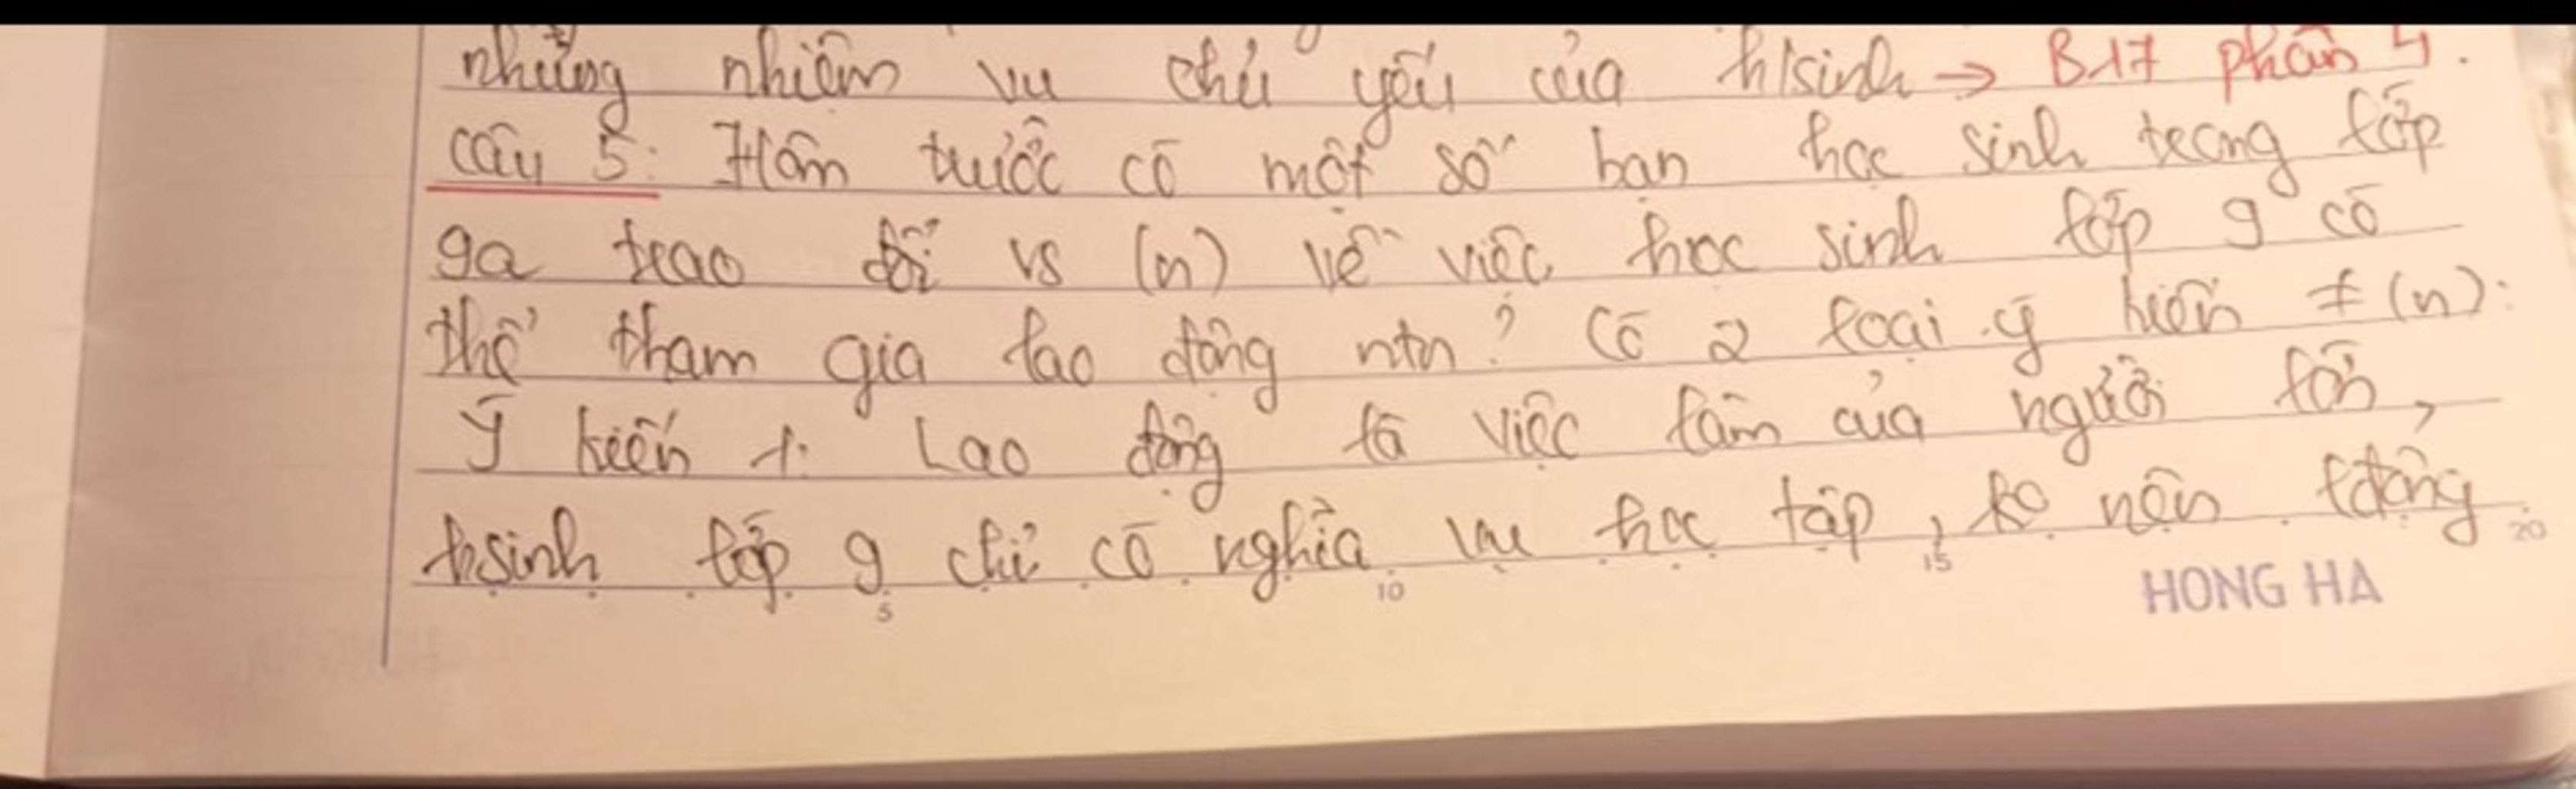 những nhiệm vụ chủ yếu của h/sinh → B17 phần 4.
câu 5: Hôm trước có một số bạn học sinh trong lớp
9a trao đổi vs (n) về việc học sinh lớp 9 có
thể tham gia lao động ntn? Có 2 loại ý kiến ≠ (n):
Ý kiến 1: Lao động là việc làm của người lớn,
hsinh lớp 9 chỉ có nghĩa vụ học tập, ko nên lđộng
5 10 15 20
HONG HA